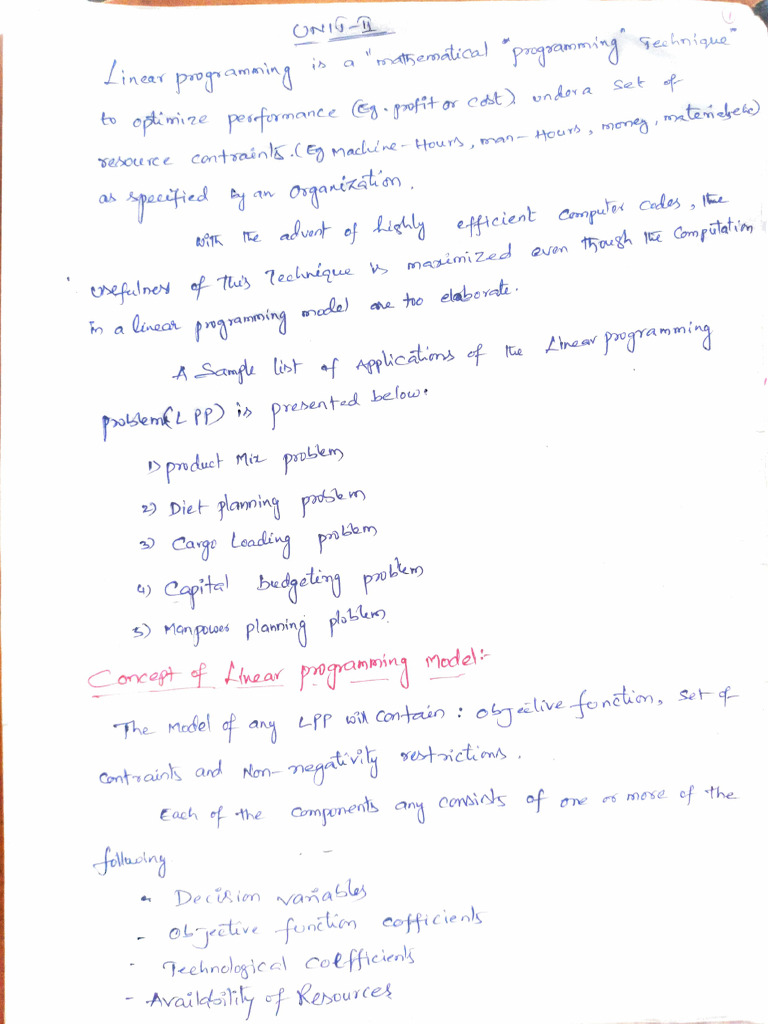 1
UNIT-II
Linear programming is a "mathematical "programming" Technique"
to optimize performance (Eg. profit or cost) under a set of
resource contraints. (Eg Machine-Hours, man-Hours, money, materials etc)
as specified by an Organization.
With the advent of highly efficient Computer Codes, the
usefulness of this Technique is maximized even though the Computation
in a linear programming model are too elaborate.
A Sample list of Applications of the Linear programming
problem(LPP) is presented below.
1) product Mix problem
2) Diet planning problem
3) Cargo Loading problem
4) Capital budgeting problem
5) Manpower planning ploblem.
Concept of Linear programming Model:-
The Model of any LPP will contain : Objective function, set of
contraints and Non-negativity restrictions.
Each of the components any consists of one or more of the
following
- Decision variables
- Objective function cofficients
- Technological coefficients
- Availability of Resources